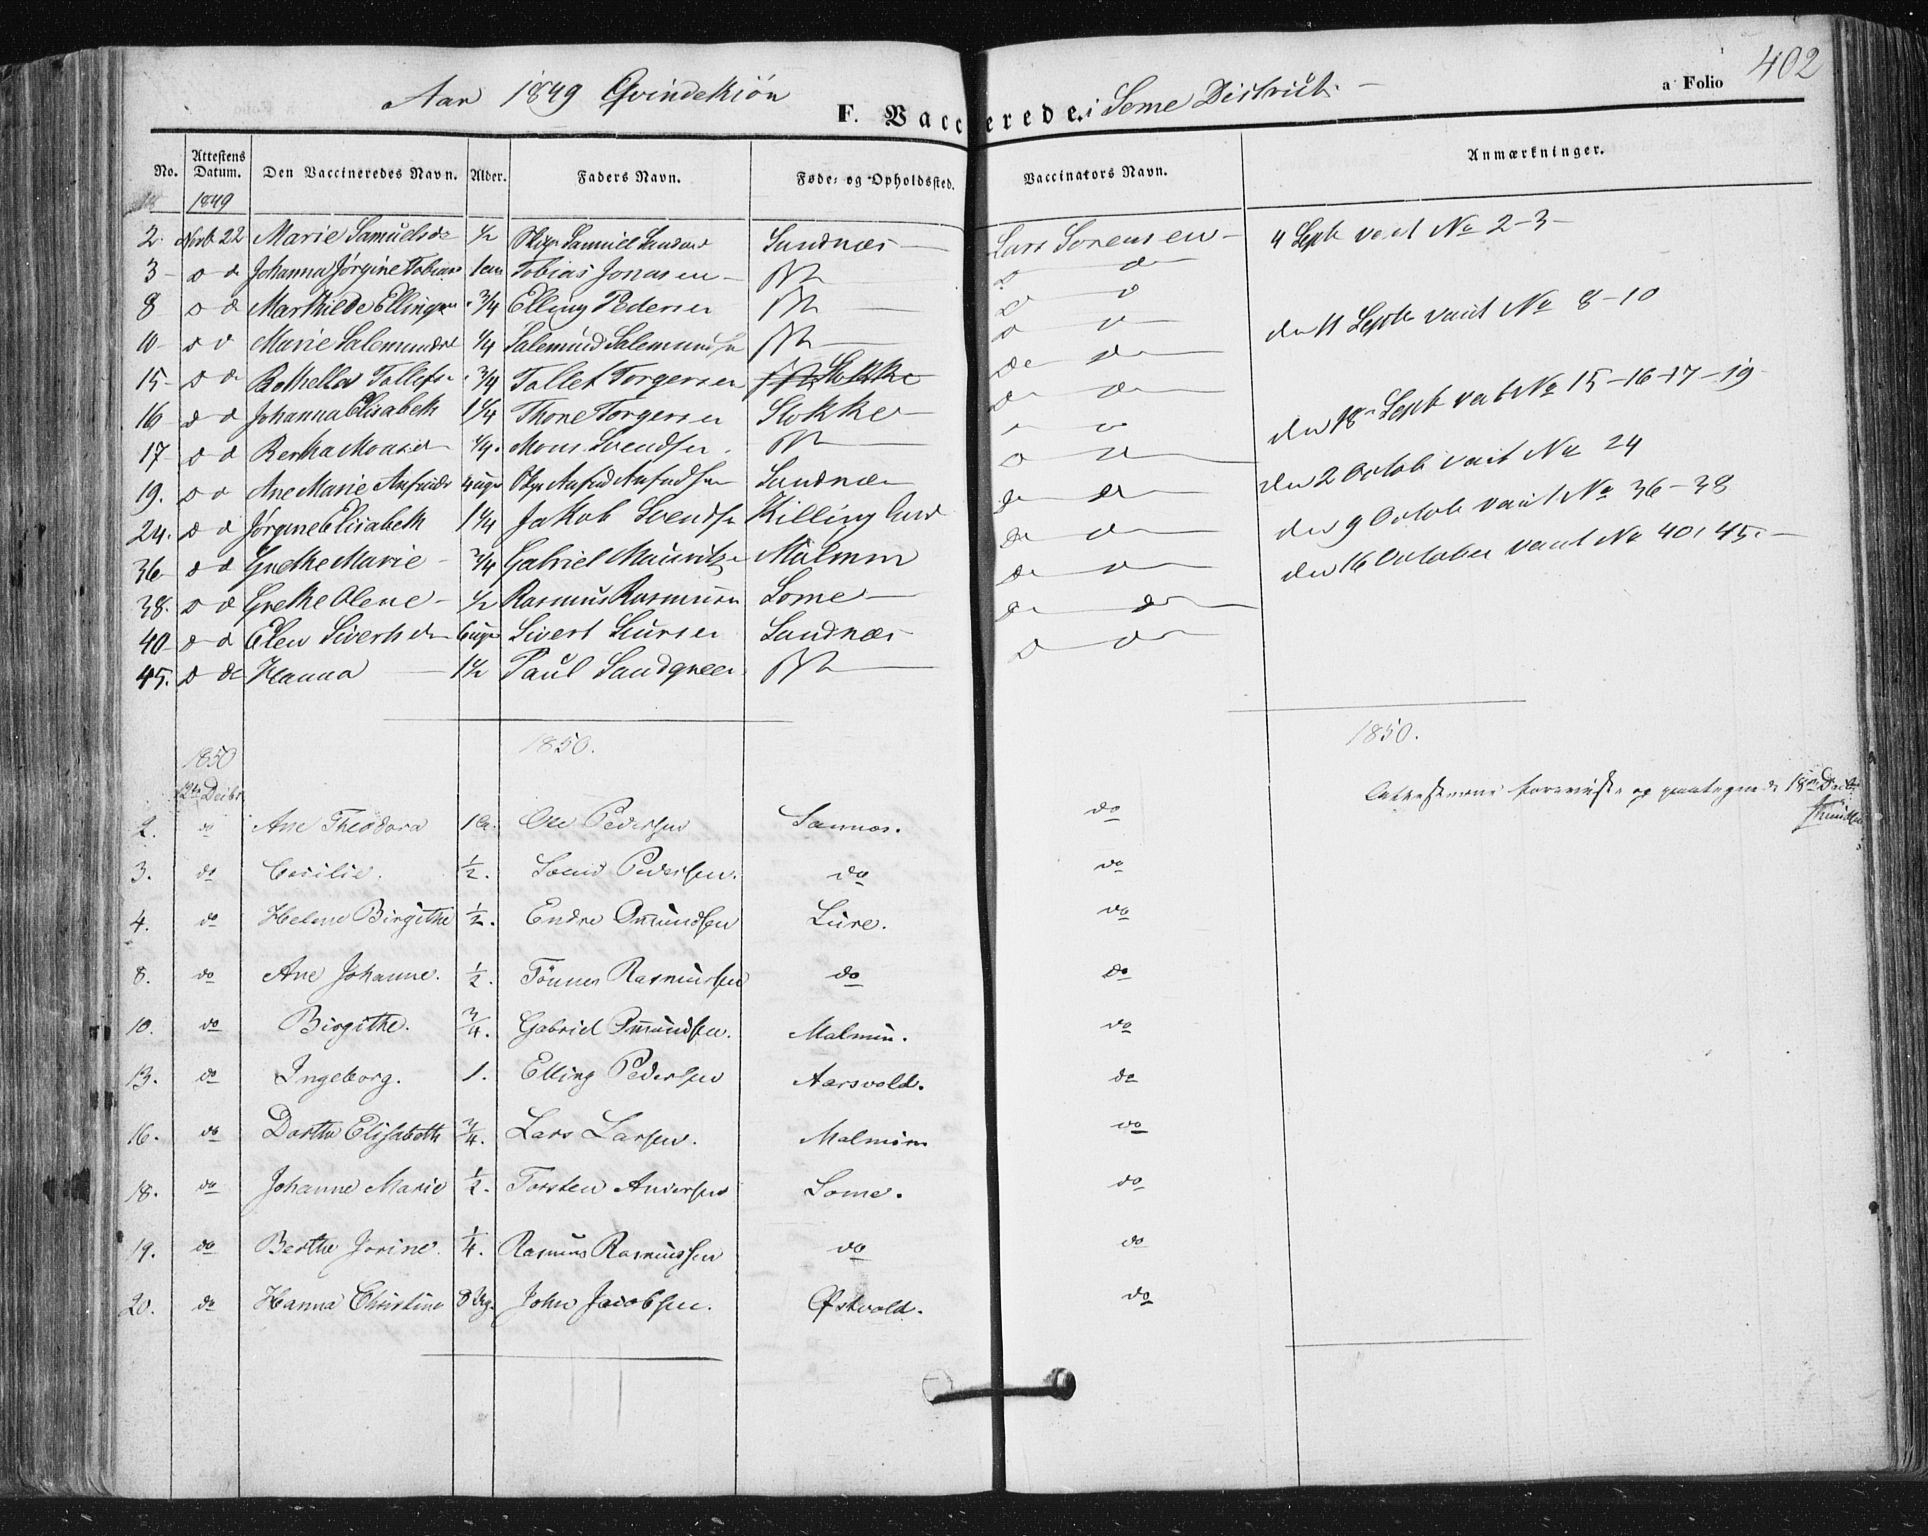 Aar 1849 Qvindekiön F. Vaccinerede. i Some District. a Folio 402
No. Attestens Datum. Den Vaccineredes Navn. Alder. Faders Navn. Føde- og Opholdssted. Vaccinators Navn. Anmærkninger.
1849
2. Novb 22 Marie Samuelsd 1/2 Samuel Sandnæs Lars Sørensen 4 Septb vacit No 2-3-
3 d d Johanna Jørgine Tobias 1 Tobias Jonasen d do
8 d d Marthilde Ellings 3/4 Elling Pedersen d d den 11 Septb vacit No 8-10
10 d d Marie Salemunds 1/4 Salemund Salemundsen d d
15 d d Bothella Tollefs 3/4 Tollef Torgersen Stokke do do den 18 Septb vact No 15-16-17-19
16 d d Johanna Elisabeth 1 1/4 Thore Torgersen Stokke do do
17 d d Bertha Monsd 1/4. Mons Svendsen d d
19. d d Ane Marie 4 uger Sandnæs d do den 2 Octob vacit No 24
24. d d Jørgine Elisabeth 1 1/4 Jakob Svends Killingland do do den 9 Octob vacit No 36-38
36 d d Grethe Marie 3/4 Gabriel Mauritz Malmin do do den 16 October vacit No 40. 45.
38. d d Grethe Olene 1/2 Rasmus Rasmusen Some do do
40 d d Elen Sivertsd 6 uger Sivert Sandnæs do do
45. d do Hanna 1 1/2 Paul Sandgreen d do
1850. 1850.
1850
12te Decbr
2. do Ane Theodora 1 a. Ole Pedersen Sannæs. do
3. do Cecilie. 1/2. Pedersen. do do
4. do Helene Birgithe 1/2. Endre Omundsen Lure. do
8. do Ane Johanne. 1/2. Tønnes Rasmussen do do
10. do Birgithe. 3/4. Gabriel Omundsen. Malmin. do
13. do Ingeborg. 1. Elling Pedersen Aarsvold. do
16. do Dorthe Elisabeth 3/4. Lars Larsen. Malmin do
18. do Johanne Marie 1/2. Torsten Andersen Some. do
19. do Berthe Jorine. 1/4. Rasmus Rasmussen do do
20. do Hanna Christine 8 Ug. John Jacobsen. Østvold. do